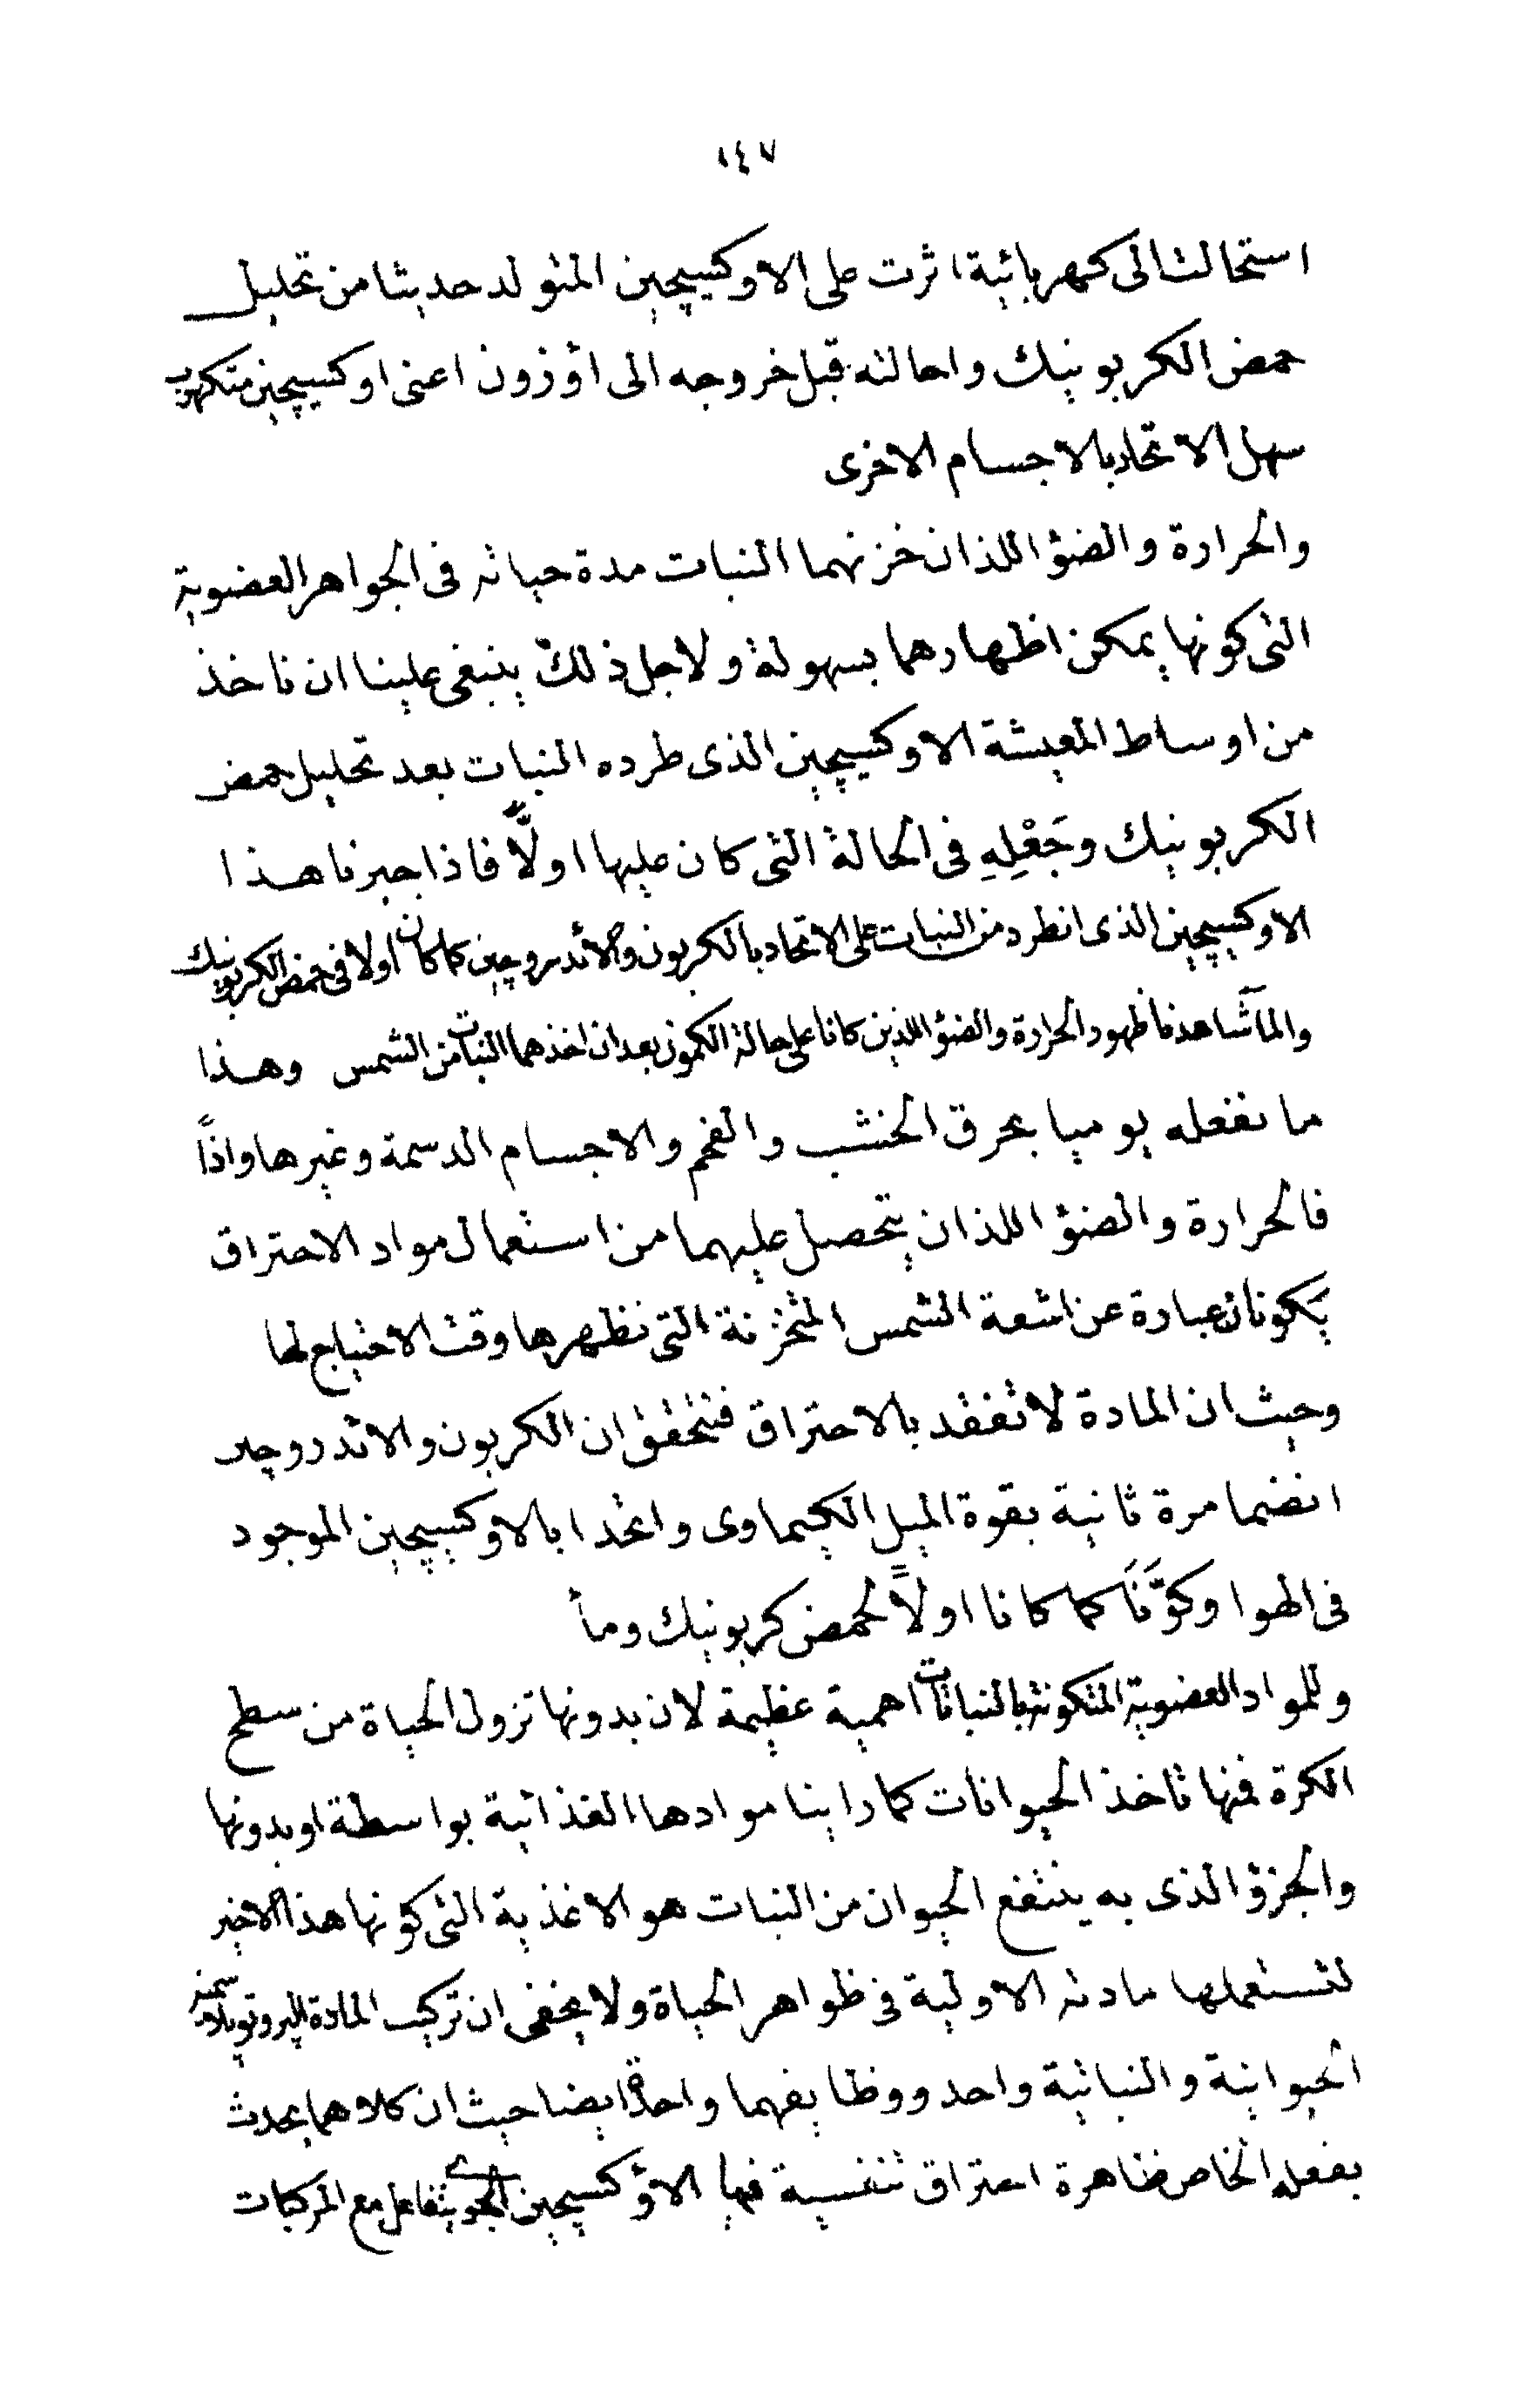 ١٤٧
استحالت الى كهربائية اثرت على الاوكسيچين المتولد حديثا من تحليل
حمض الكربونيك واحالته قبل خروجه الى اوزون اعنى اوكسيچين متكهرب
سهل الاتحاد بالاجسام الاخرى
والحرارة والضؤ اللذان خزنهما النبات مدة حياته فى الجواهر العضوية
التى كونها يمكن اظهارهما بسهولة ولاجل ذلك ينبغى علينا ان ناخذ
من اوساط المعيشة الاوكسيچين الذى طرده النبات بعد تحليل حمض
الكربونيك وجَعْلِهِ فى الحالة التى كان عليها اولًّا فاذا جبرنا هذا
الاوكسيچين الذى انطرد من النبات على الاتحاد بالكربون والأندروچين كما كان اولا فى حمض الكربونيك
والمآ شاهدنا ظهور الحرارة والضؤ اللذين كانا على حالة الكمون بعد ان اخذهما النبات من الشمس وهذا
ما نفعله يوميا بحرق الخشب والفحم والاجسام الدسمة وغيرها واذاً
فالحرارة والضؤ اللذان يتحصل عليهما من استعمال مواد الاحتراق
يَكونان عبارة عن اشعة الشمس المتخزنة التى نظهرها وقت الاحتياج لها
وحيث ان المادة لا تفقد بالاحتراق فتحقق ان الكربون والاندروچين
انضما مرة ثانية بقوة الميل الكيماوى واتحدا بالاوكسيچين الموجود
فى الهوا وكوَّنَا كما كانا اولاً لحمض كربونيك ومأ
وللمواد العضوية المتكونة بالنباتات اهمية عظيمة لان بدونها تزول الحياة من سطح
الكرة فمنها تاخذ الحيوانات كما راينا موادها الغذائية بواسطة او بدونها
والجزؤ الذى به ينتفع الحيوان من النبات هو الاغذية التى كونها هذا الاخير
لتستعملها مادته الاولية فى ظواهر الحياة ولا يخفى ان تركيب المادة البروتوبلاسمية
الحيوانية والنباتية واحد ووظايفهما واحدة ايضا حيث ان كلاهما يحدث
بفعله الخاص ظاهرة احتراق تنفسية فيها الاؤكسيچين الجوى يتفاعل مع المركبات